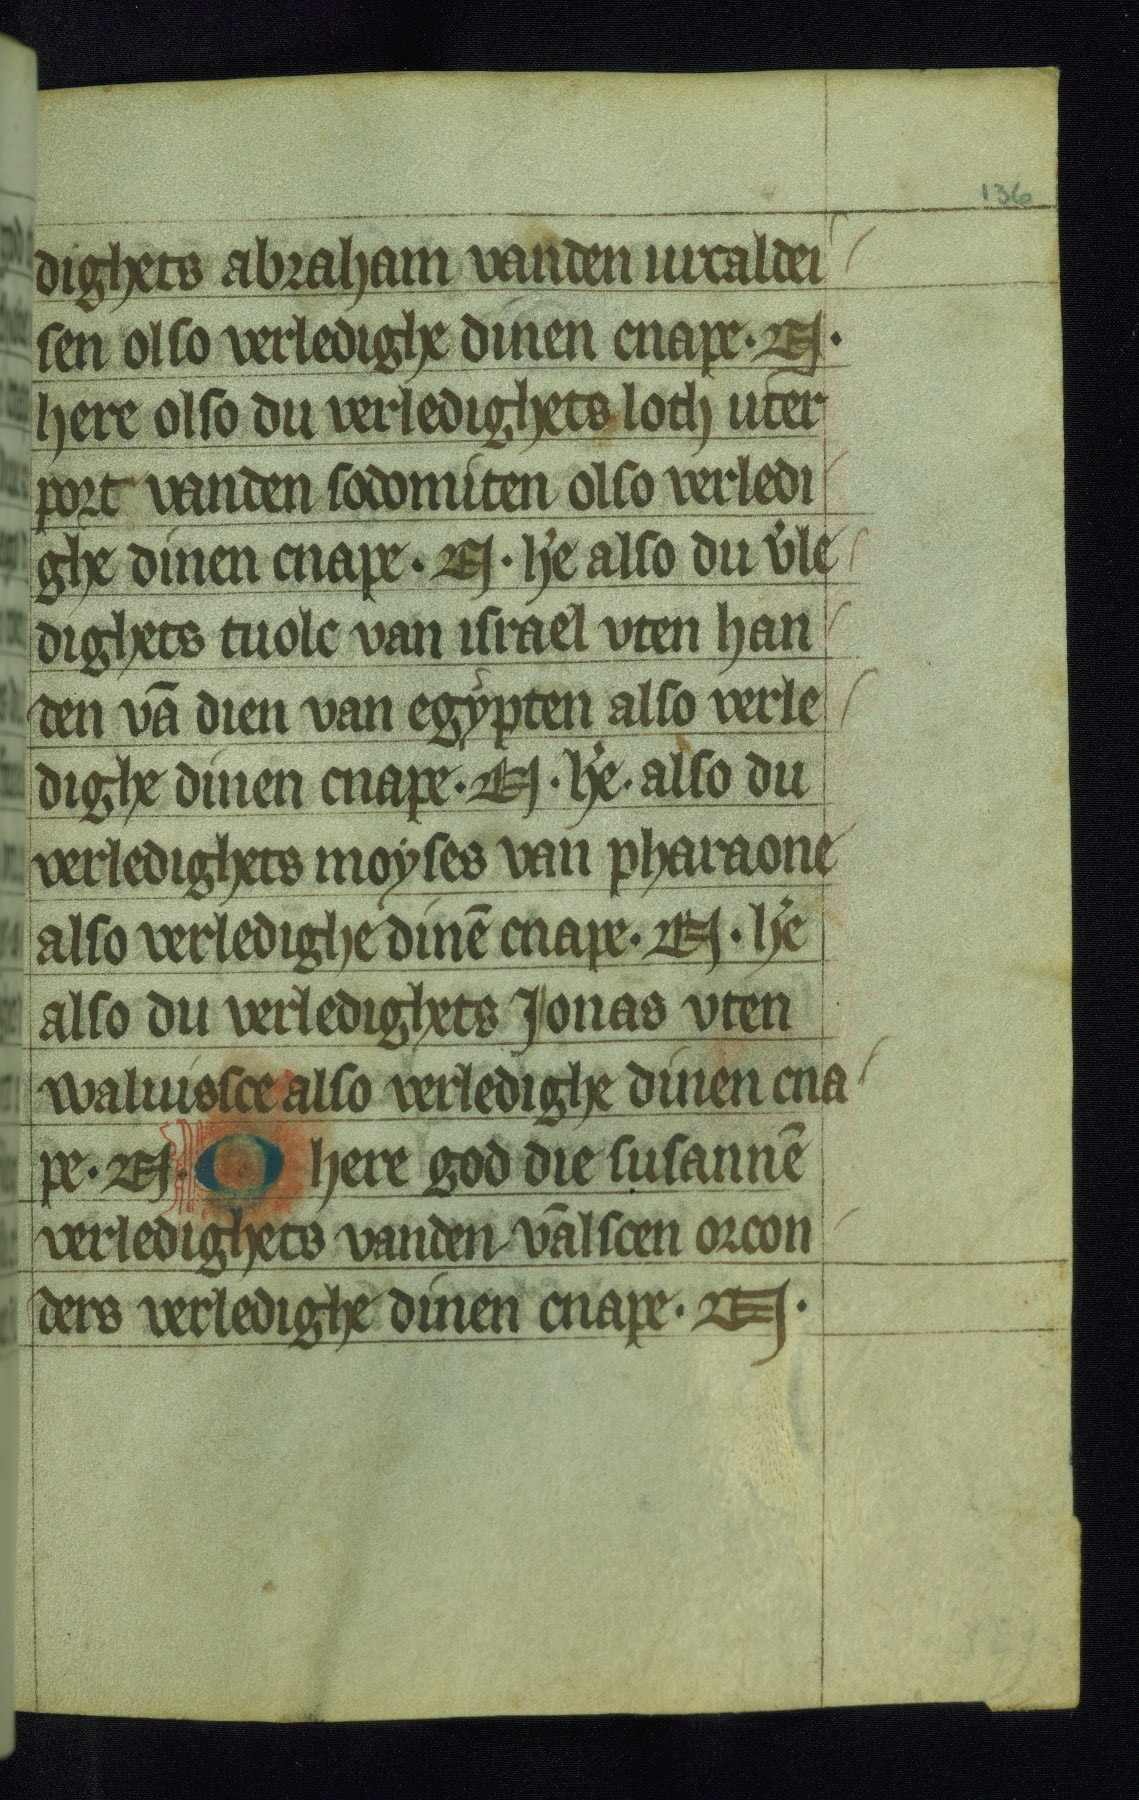 136
dighets abraham vanden uurcaldei
sen olso verledighe dinen cnape. A.
here olso du verledighets loth uter
port vanden sodomiten olso verledi
ghe dinen cnape. A. h'e also du v'le
dighets tuolc van israel vten han
den vā dien van egypten also verle
dighe dinen cnape. A. h'e. also du
verledighets moyses van pharaone
also verledighe dinē cnape. A. h'e
also du verledighets Jonas vten
waluissce also verledighe dinen cna
pe. A. O here god die susannē
verledighets vanden vālscen orcon
ders verledighe dinen cnape. A.